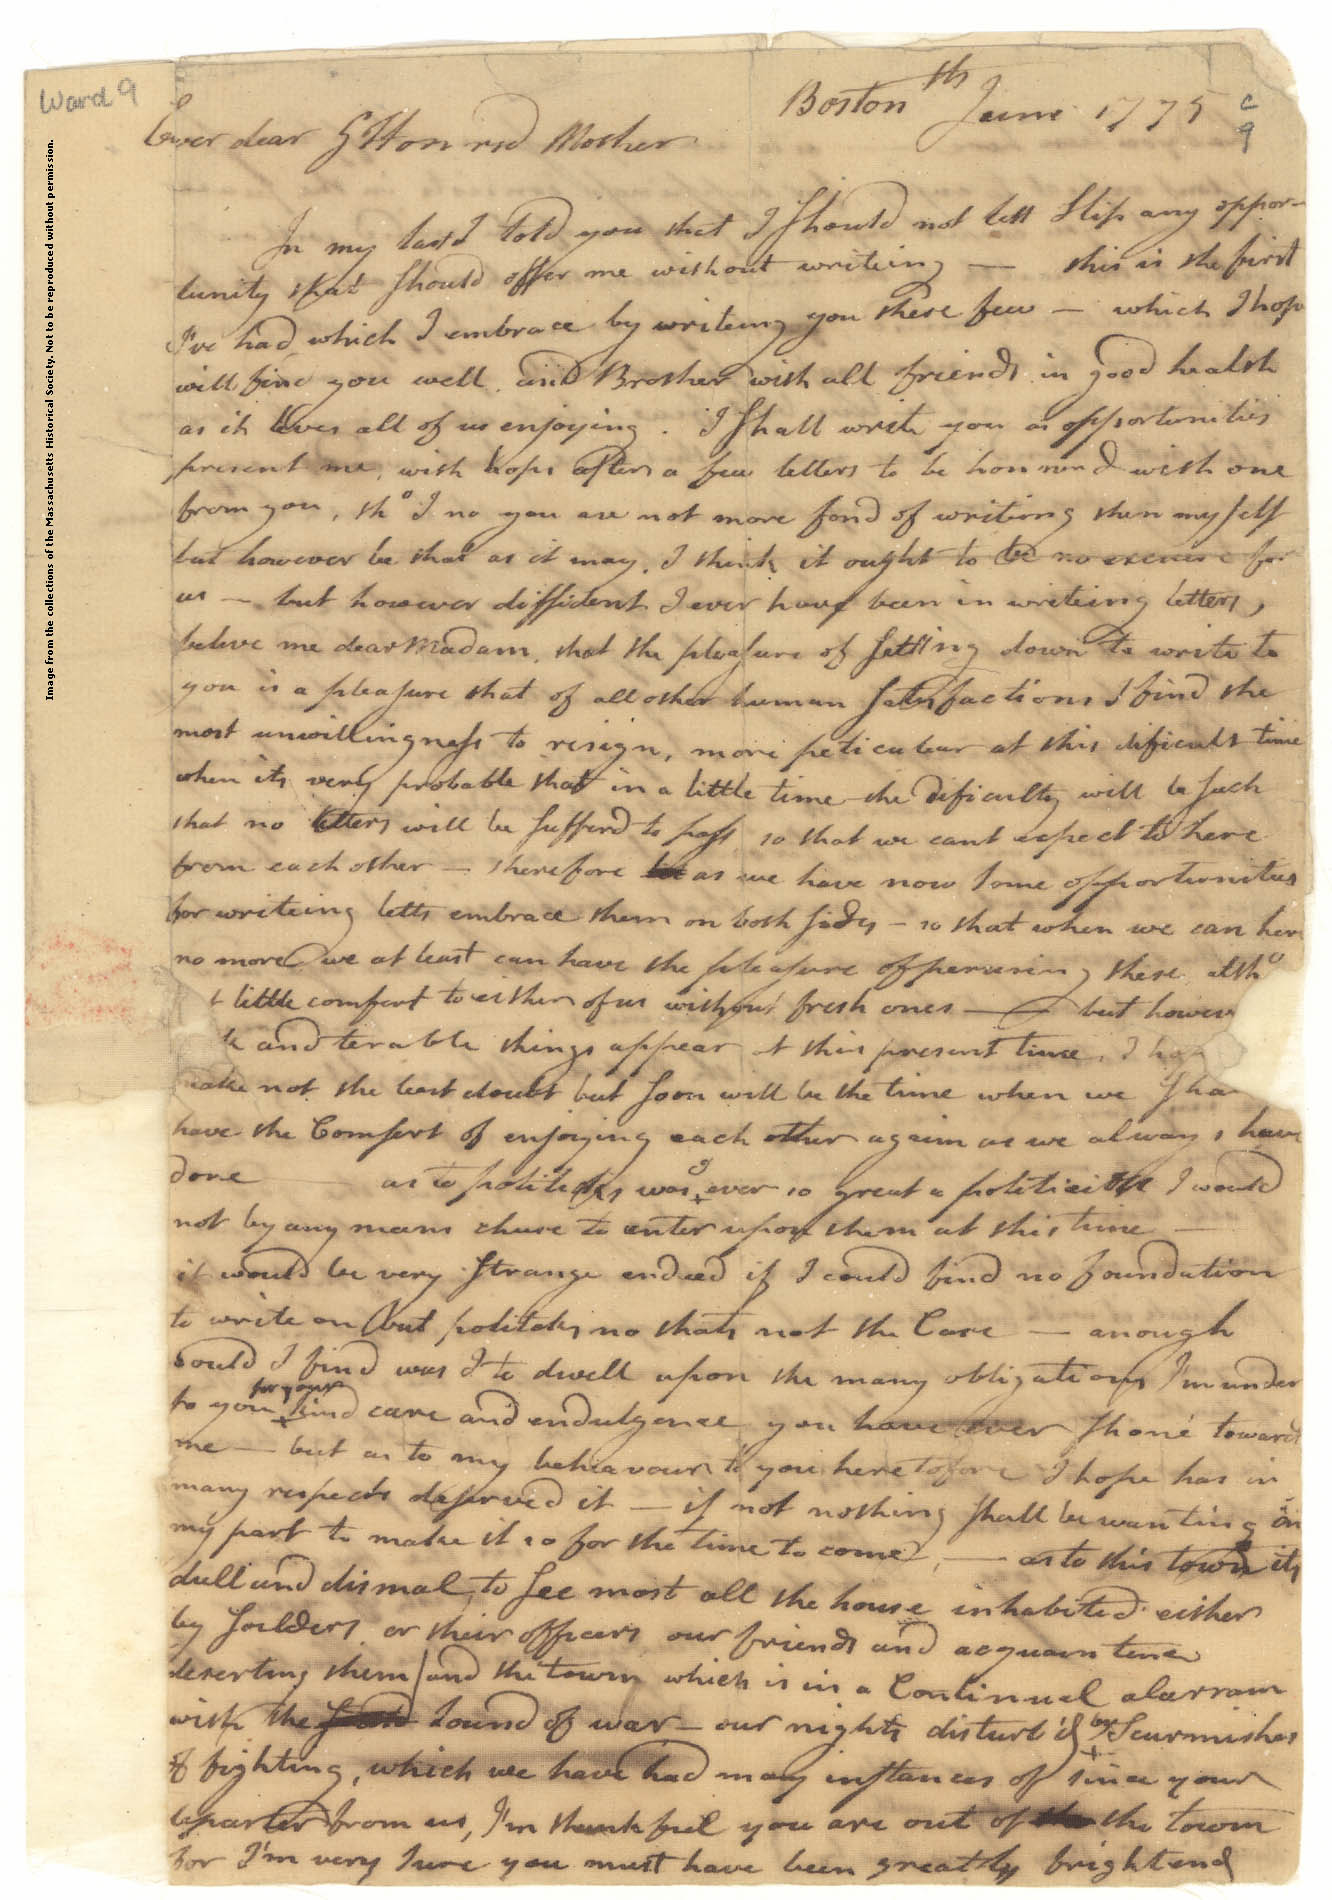 Ward 9
Boston th June 1775
c
9
Ever dear & Honrd Mother
In my last I told you that I should not lett slip any oppor-
tunity that should offer me without writeing — this is the first
I've had which I embrace by writeing you these few — which I hope
will find you well and Brother with all friends in good health
as it leves all of us enjoying. I shall write you as opportunities
present me, with hops after a few letters to be honnerd with one
from you, tho I no you are not more fond of writiong then myself
but however be that as it may, I think it ought to be no excuse for
us — but however diffident I ever have been in writeing letters,
beleve me dear Madam, that the pleasure of setting down to write to
you is a pleasure that of all other human satisfactions I find the
most unwillingness to resign, more peticulear at this dificult time
when its very probable that in a little time the dificulty will be such
that no letters will be sufferd to pass, so that we cant expect to here
from each other — therefore as we have now some opportunities
for writeing letts embrace them on both sides — so that when we can here
no more we at least can have the pleasure of peruseing these altho
t little comfort to either of us without fresh ones — but howev
k and terable things appear at this present time, I hop
make not the least doubt but soon will be the time when we sha
have the Comfort of enjoying each other again as we always have
done — as to politicks was I ever so great a politician I would
not by any means chuse to enter upon them at this time —
it would be very strange endeed if I could find no foundation
to write on but politicks no thats not the Case — anough
could I find was I to dwell upon the many obligations I'm under
to you for your kind care and endulgence you have ever shone toward
me — but as to my behavour to you heretofore I hope has in
many respects deserved it — if not nothing shall be wanting on
my part to make it so for the time to come, — as to this town its
dull and dismal to see most all the house inhabited either
by soulders or their officers our friends and acquaintence
deserting them and the town which is in a Continuel alarram
with the sound of war — our nights disturb'd by Scurmishes
of fighting, which we have had many instances of since your
departer from us, I'm thankfuel you are out of the town
for I'm very sure you must have been greatly frightend
Image from the collections of the Massachusetts Historical Society. Not to be reproduced without permission.